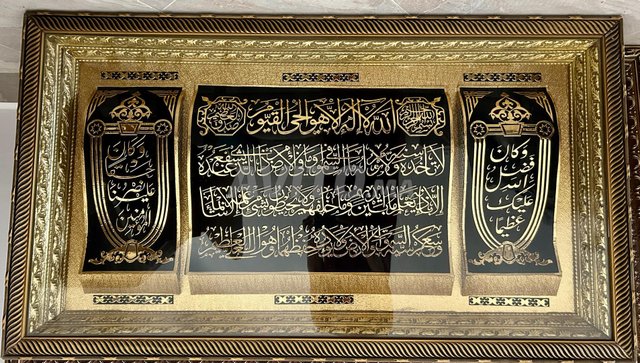 الله لا إله إلا هو الحي القيوم
لا تأخذه سنة ولا نوم له ما في السموات وما في الأرض من ذا الذي يشفع عنده
إلا بإذنه يعلم ما بين أيديهم وما خلفهم ولا يحيطون بشيء من علمه إلا بما شاء
وسع كرسيه السموات والأرض ولا يؤده حفظهما وهو العلي العظيم
وكان
فضل
الله
عليك
عظيما
وكان
حقا
علينا نصر
المؤمنين